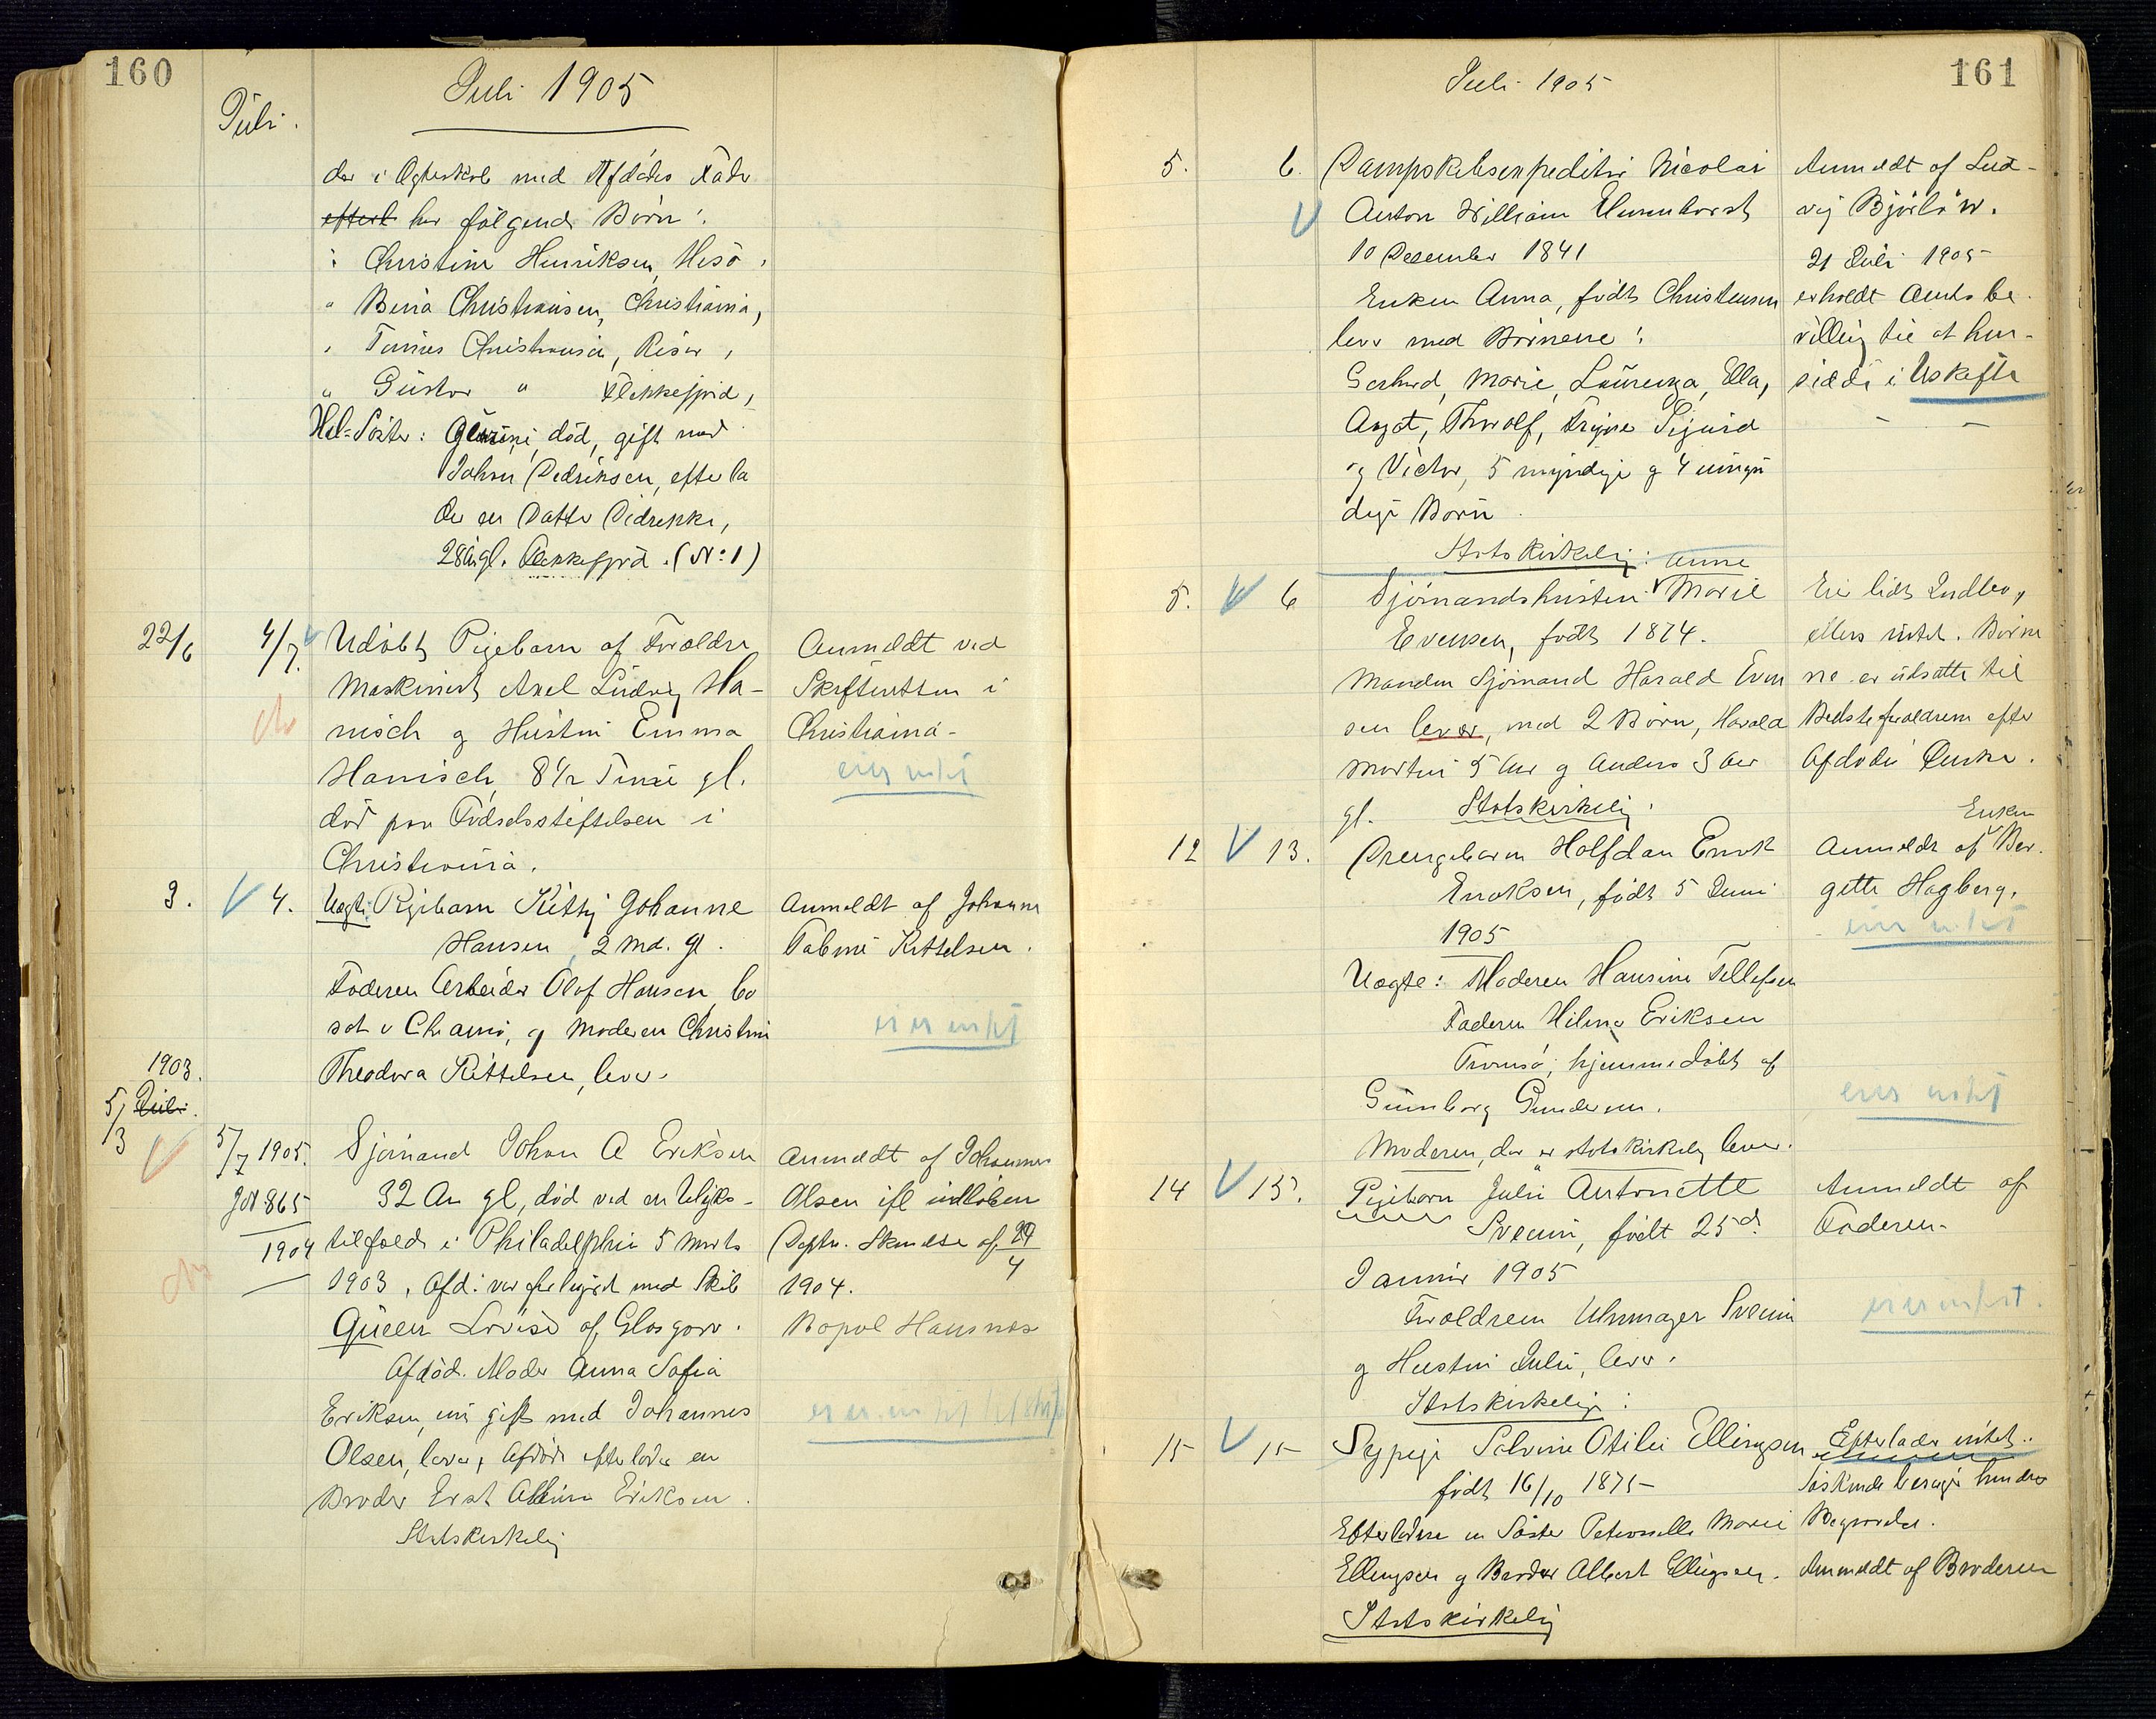 160
Juli 1905
Juli.
der i Ægteskab med Afdødes Fader
efterl. har følgende Börn:
Christine Henriksen, Hisö,
" Berta Christiansen, Christiania,
" Tønnes Christiansen, Risør,
" Gustav " Flekkefjord,
Hel-Söster: død, gift med
Johan Pedersen, efterla
der en Datter Didrikke,
28 År gl. Flekkefjord. (No 1)
22/6 4/7 Udöbt Pigebarn af Forældre
Maskinist Axel Ludvig Ha-
nisch og Hustru Emma
Hanisch, 8½ Time gl.
död paa Födselsstiftelsen i
Christiania.
Anmeldt ved
Skifteretten i
Christiania.
eies intet
3. 4. Uægte Pigebarn Kitty Johanne
Hansen, 2 Md. gl.
Faderen Arbeider Olaf Hansen, bo
sat i Chrania, og Moderen Christine
Theodora Kittelsen, lever.
Anmeldt af Johanne
Kittelsen.
eies intet
1903.
5/3 Juli.
5/7 1905.
JN 865
1904
Sjømand Johan A Eriksen
32 Aar gl, död ved en Ulykkes-
tilfælde i Philadelphia 5 Marts
1903, Afd. var forhyret med Skib
Queen Lovise af Glasgow.
Afdöd. Moder Anna Sofia
Eriksen, nu gift med Johannes
Olsen, lever, Afdöde efterlader en
Broder Albin Eriksen.
Statskirkelig
Anmeldt af Johannes
Olsen ifl indløben
Depts. Skrivelse af 29/4
1904.
Bopæl Hausnæs
161
Juli 1905
5. 6. Dampskibsexpeditør Nicolai
Anton William
10 December 1841
Enken Anna, født Christensen
lever med Börnene:
Gerhard, Marie, Laurenza, Ella,
Aagot, Thorolf, Trygve Sigurd
og Victor, 5 myndige og 4 umyn
dige Börn.
Statskirkelig:
Anmeldt af Lud-
vig Björlöw.
21 Juli 1905
erholdt Amtsbe
villing til at hen-
sidde i Uskifte
5. 6 Sjömandshustru Anne Marie
Evensen, födt 1874.
Manden Sjömand Harald Even
sen lever, med 2 Börn, Harald
Martin 5 Aar og Anders 3 Aar
gl. Statskirkelig.
Eier lidt Indbo,
ellers intet. Börne
ne er udsatte til
Bedsteforældrene efter
Afdöde Önske.
12 13. Drengebarn Halfdan Enok
Enoksen, födt 5 Juni
1905
Uægte: Moderen Hansine Tellefsen
Faderen Hilmar Eriksen
Tromsö, hjemmedöbt af
Gunborg Gundersen.
Moderen, der er statskirkelig lever.
Anmeldt af Enken Ber.
gette Hagberg.
eier intet
eies intet
14 15. Pigebarn Julie Antonette
Svenni, födt 25d
Januar 1905
Forældrene Uhrmager Svenni
og Hustru Julie, lever.
Statskirkelige:
Anmeldt af
Faderen.
15 15 Sypige Solvine Otilie Ellingsen
födt 16/10 1875
Efterladere en Söster Petronelle Marie
Ellingsen og Broder Albert Ellingsen.
Statskirkelig
Efterlader intet.
Söskende besørger hendes
Begravelse.
Anmeldt af Broderen